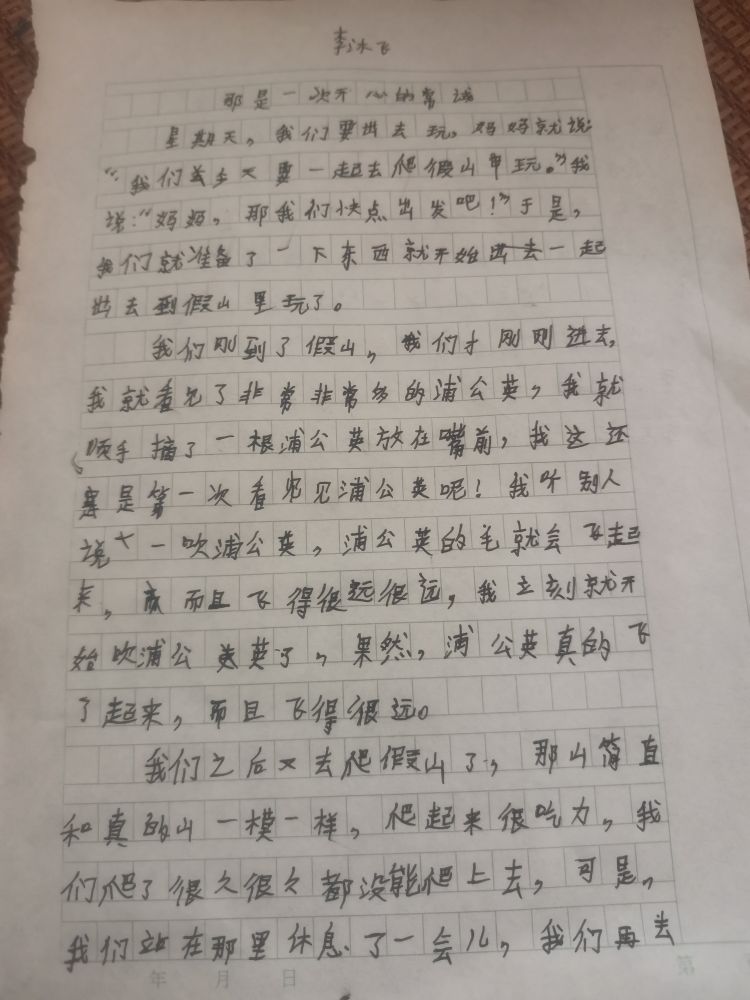 李冰飞
那是一次开心的尝试
星期天，我们要出去玩，妈妈就说：
“我们今天要一起去爬假山早玩。”我
说：“妈妈，那我们快点出发吧！”于是，
我们就准备了一下东西就开始出去一起
出去到假山里玩了。
我们刚到了假山，我们才刚刚进去，
我就看见了非常非常多的浦公英，我就
顺手摘了一根浦公英放在嘴前，我这还
是第一次看见见浦公英呢！我听别人
说一吹浦公英，浦公英的毛就会飞起
来，而且飞得很远很远，我立刻就开
始吹浦公英了，果然，浦公英真的飞
了起来，而且飞得很远。
我们之后又去爬假山了，那山简直
和真的山一模一样，爬起来很吃力，我
们爬了很久很久都没能爬上去，可是，
我们站在那里休息了一会儿，我们再去
年 月 日
第